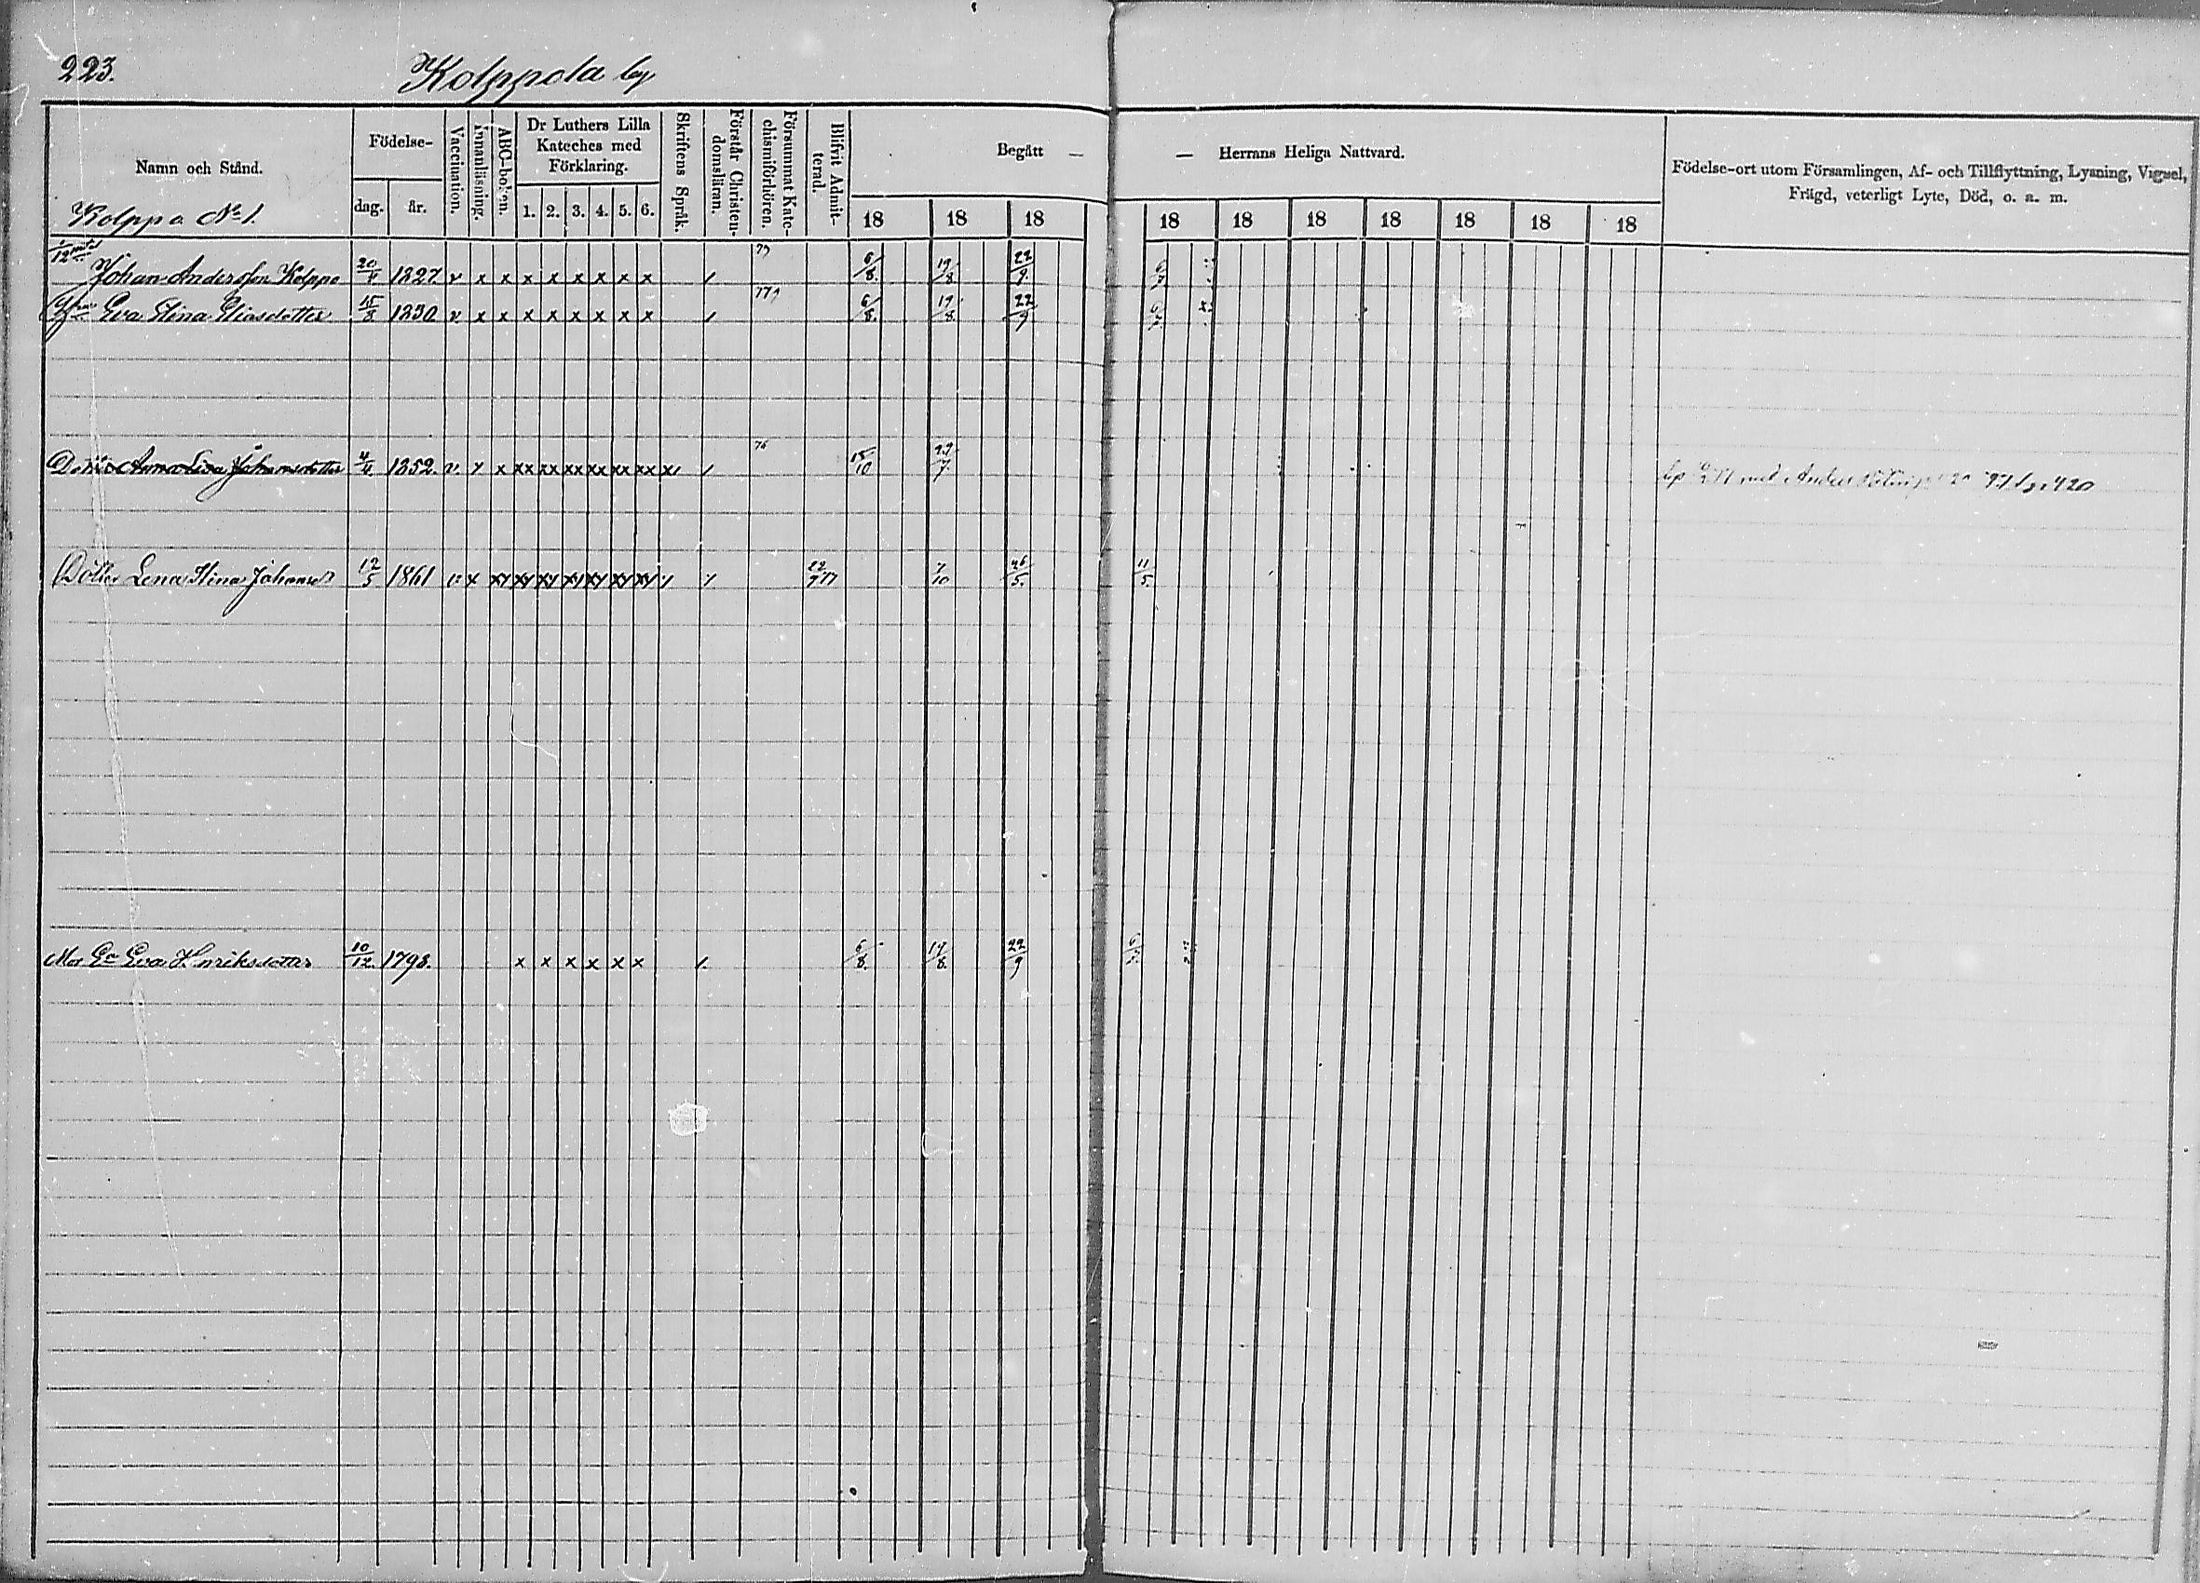 223. Kolppola by
Namn och Stånd. Födelse- dag. år. Vaccination. Innanläsning. ABC-boken. Dr Luthers Lilla Kateches med Förklaring. 1. 2. 3. 4. 5. 6. Skriftens Språk. Förstår Christendomsläran. Försummat Katechismiförhören. Blifvit Admitterad. Begått — — Herrans Heliga Nattvard. Födelse-ort utom Församlingen, Af- och Tillflyttning, Lysning, Vigsel, Frägd, veterligt Lyte, Död, o. a. m.
18 18 18 18 18 18 18 18 18 18
Kolppo No 1.
1/12 mtl
Johan Andersson Kolppo 20/4 1827. v x x x x x x x x / 79 6/8. 19/8 22/9. 6/7
Hu Eva Stina Eliasdotter 15/8 1830 v x x x x x x x x / 6/8. 19/8. 22/9 6/7
Dotter Anna Lisa Johansdotter 4/4. 1852. v. x xx xx xx xx xx xx / 76 15/10 29/7. med Anders 420
Dotter Lena Stina Johansd 12/5 1861 v x xy xy xy xy xy xy xy / 7/10 26/5. 11/5.
Mor Ea Eva Henriksdotter 10/12. 1798. x x x x x x / 6/8. 19/8. 22/9 6/7